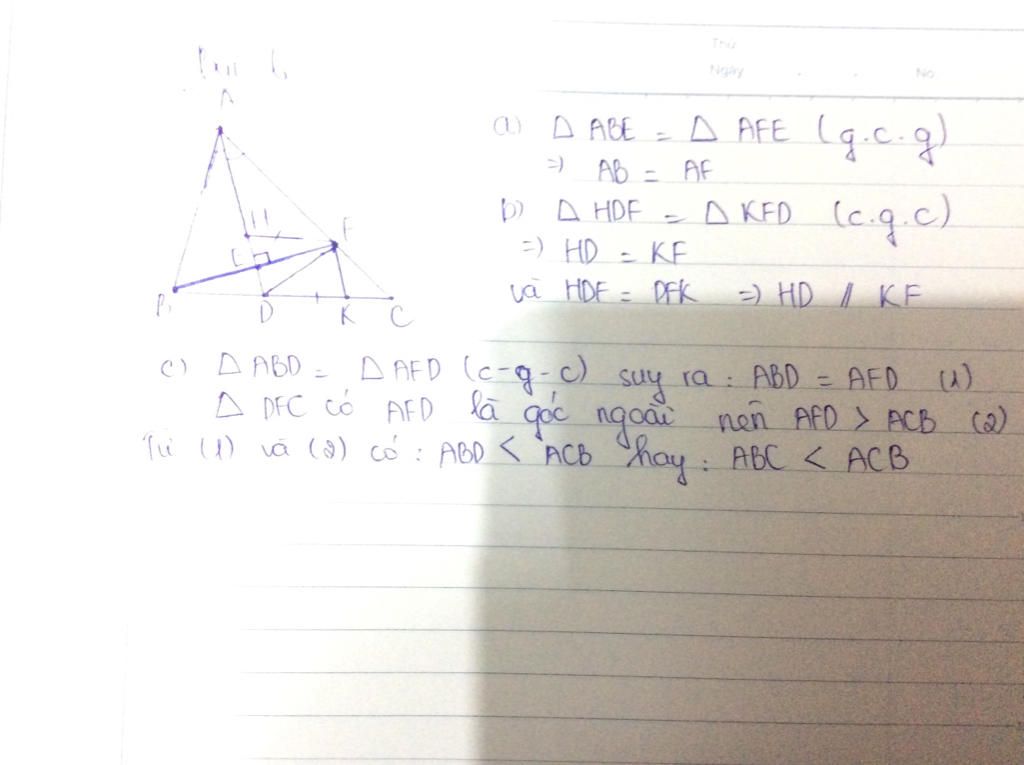 Thứ
Ngày
No
A
H
F
E
B
D
K
C
a) △ ABE = △ AFE (g.c.g)
=> AB = AF
b) △ HDF = △ KFD (c.g.c)
=> HD = KF
và HDF = DFK => HD // KF
c) △ ABD = △ AFD (c-g-c) suy ra : ABD = AFD (1)
△ DFC có AFD là góc ngoài nên AFD > ACB (2)
Từ (1) và (2) có : ABD < ACB hay : ABC < ACB